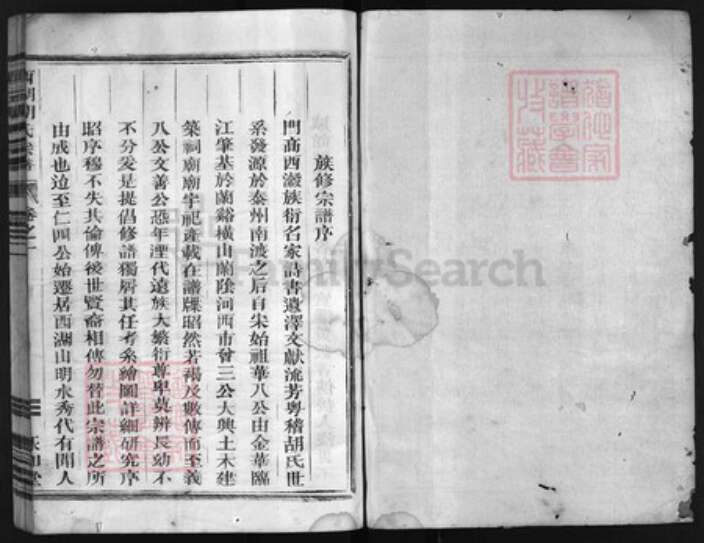 族修宗譜序
門高酉瀔族衍名家詩書遺澤文獻流芳粵稽胡氏世
系發源於泰州南渡之后自宋始祖華八公由金華臨
江肇基於蘭谿橫山蘭陰河西市曾三公大興土木建
築祠廟廟宇祀產載在譜牒昭然若揭及數傳而至義
八公文善公恐年湮代遠族大繁衍尊卑莫辨長幼不
不分爰是提倡修譜獨厨其任考系繪圖詳細研究序
昭序穆不失其倫俾後世賢裔相傳勿替此宗譜之所
由成也迨至仁四公始遷居西湖山明水秀代有聞人
胡氏宗譜 卷之一
FamilySearch